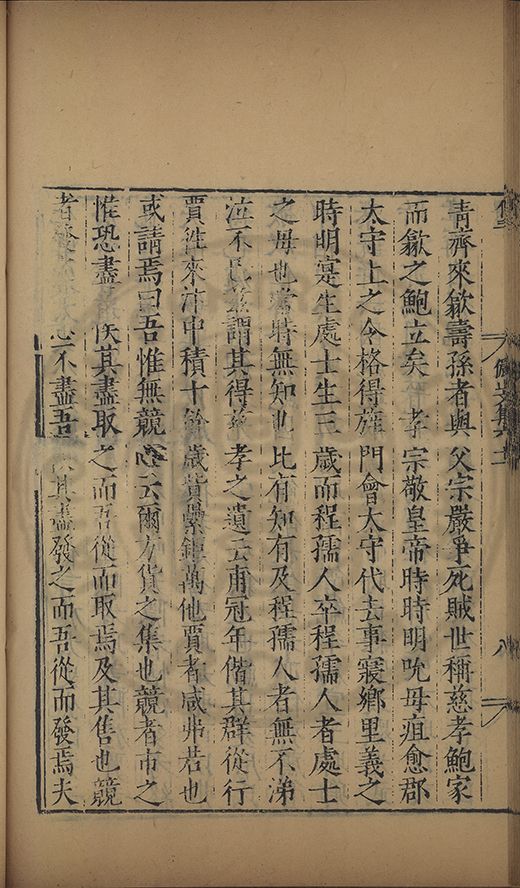 青齊來歙壽孫者與父宗嚴爭死賊世稱慈孝鮑家
而歙之鮑立矣 孝宗敬皇帝時時明吮母疽愈郡
太守上之令格得旌門會太守代去事寢鄉里義之
時明寔生處士生三歲而程孺人卒程孺人者處士
之母也當時無知也比有知有及程孺人者無不涕
泣不已葢謂其得慈孝之遺云甫冠年偕其群從行
賈徃來沛中積十餘歲貲纍鉅萬他賈者咸弗若也
或請焉曰吾惟無競心云爾方貨之集也競者市之
惟恐盡 俟其盡取之而吾從而取焉及其售也競
者 恐不盡吾俟其盡發之而吾從而發焉夫
八